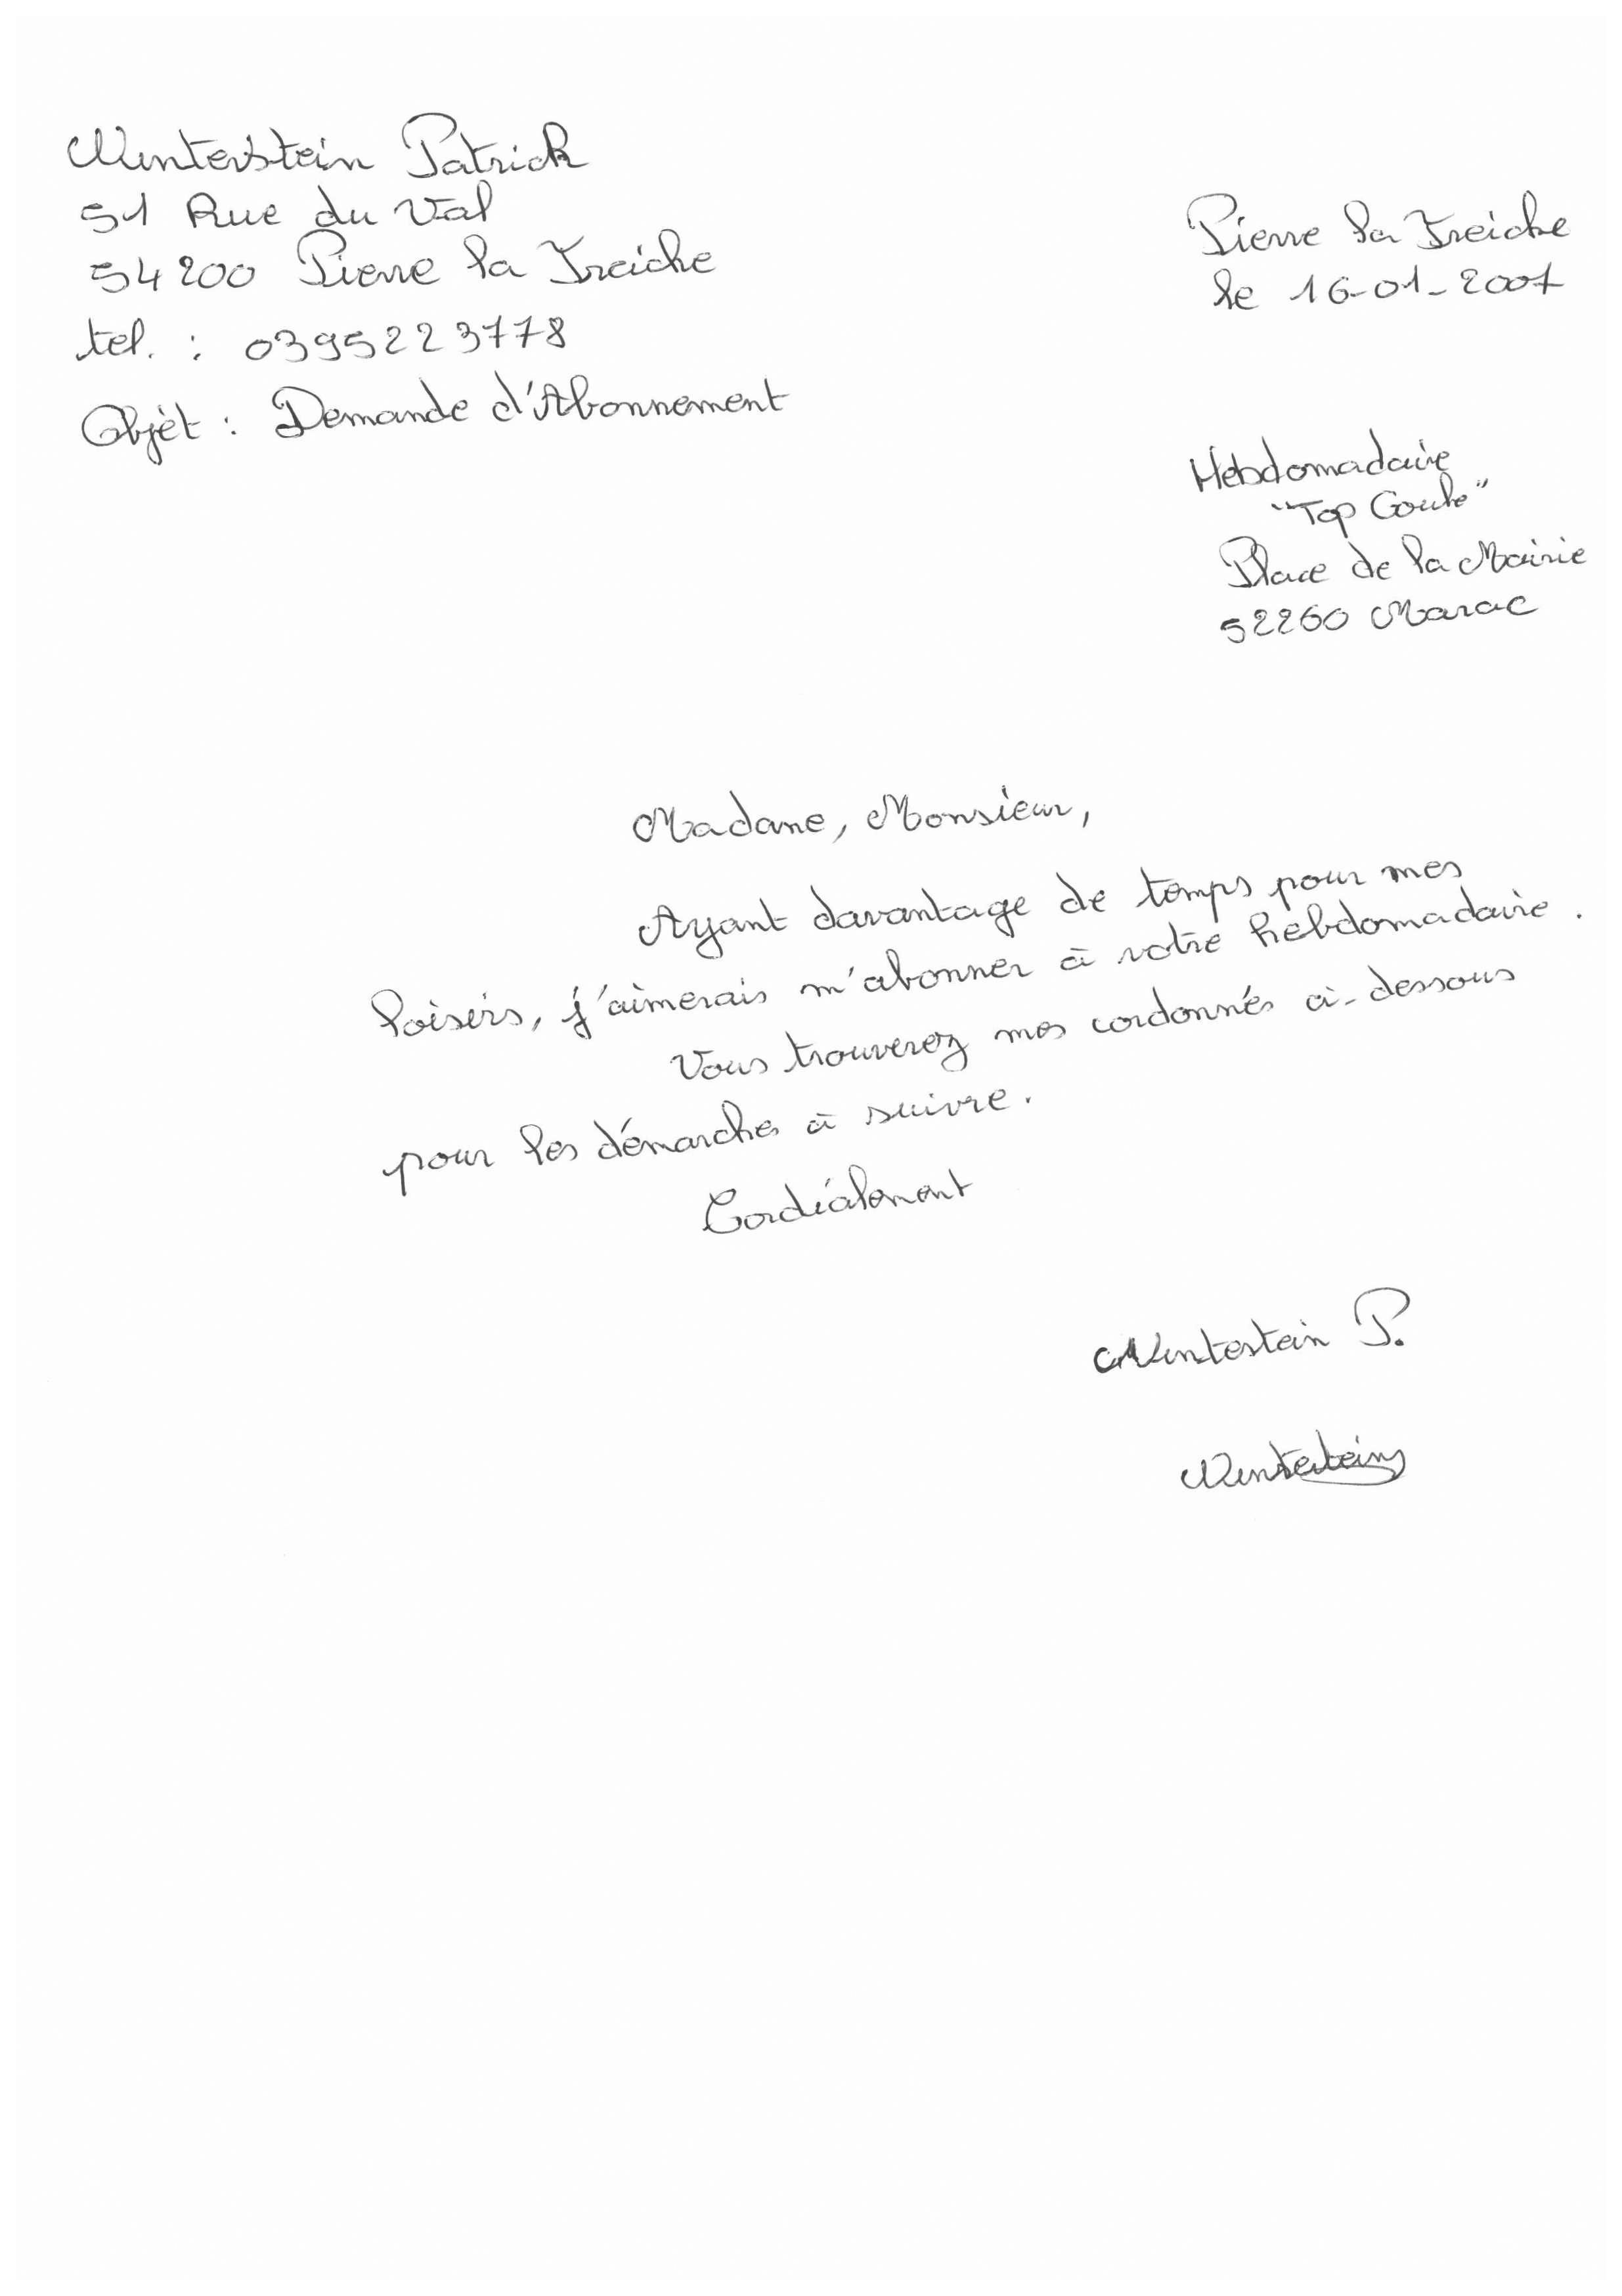 Winterstein Patrick
51 Rue du Val
54200 Pierre la Treiche
tel. : 0395223778
Objèt : Demande d'Abonnement
Pierre la Treiche
le 16-01-2007
Hebdomadaire
"Top
Place de la Mairie
52260 Marac
Madame, Monsieur,
Ayant davantage de temps pour mes
loisirs, j'aimerais m'abonner à votre hebdomadaire.
Vous trouverez mes cordonnés ci-dessous
pour les démarches à suivre.
Cordialement
Winterstein P.
Winterstein